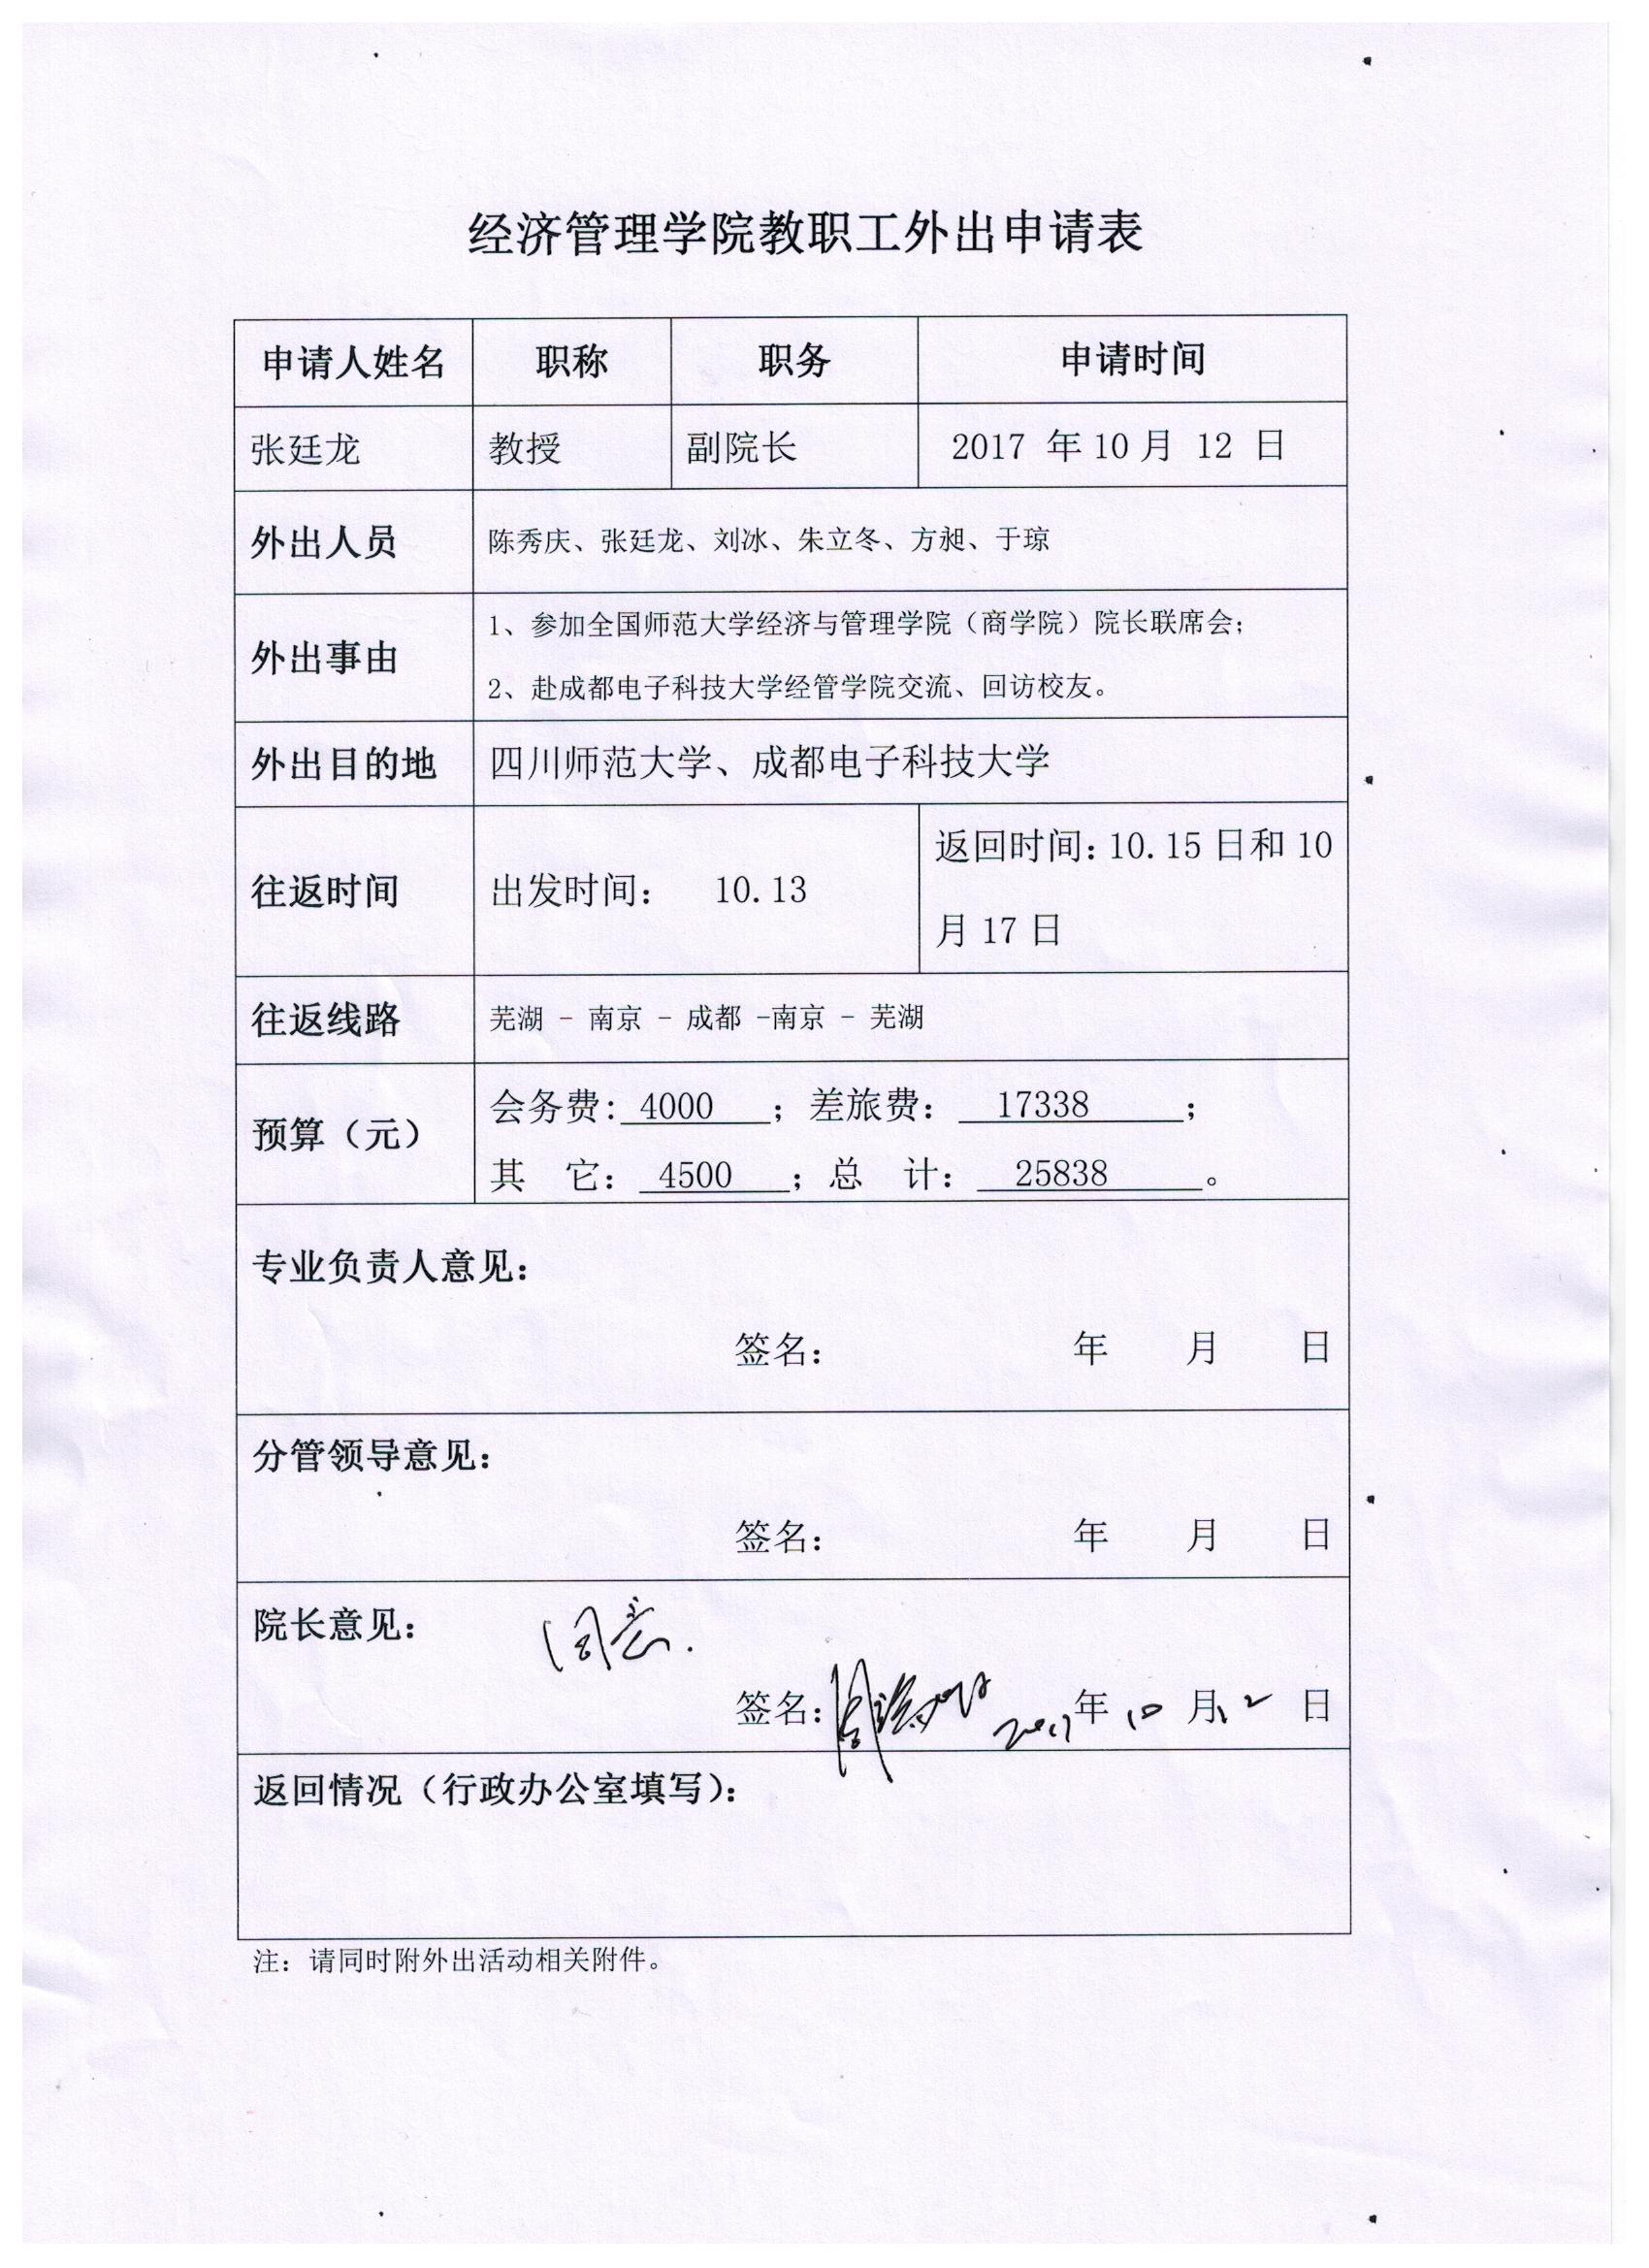 经济管理学院教职工外出申请表
申请人姓名 职称 职务 申请时间
张廷龙 教授 副院长 2017 年 10 月 12 日
外出人员 陈秀庆、张廷龙、刘冰、朱立冬、方昶、于琼
外出事由
1、参加全国师范大学经济与管理学院（商学院）院长联席会；
2、赴成都电子科技大学经管学院交流、回访校友。
外出目的地 四川师范大学、成都电子科技大学
往返时间 出发时间： 10.13
返回时间：10.15 日和 10
月 17 日
往返线路 芜湖 - 南京 - 成都 -南京 - 芜湖
预算（元）
会务费：4000 ；差旅费： 17338 ；
其 它： 4500 ；总 计： 25838 。
专业负责人意见：
签名： 年 月 日
分管领导意见：
签名： 年 月 日
院长意见： 同意.
签名： 2017年 10 月12 日
返回情况（行政办公室填写）：
注：请同时附外出活动相关附件。